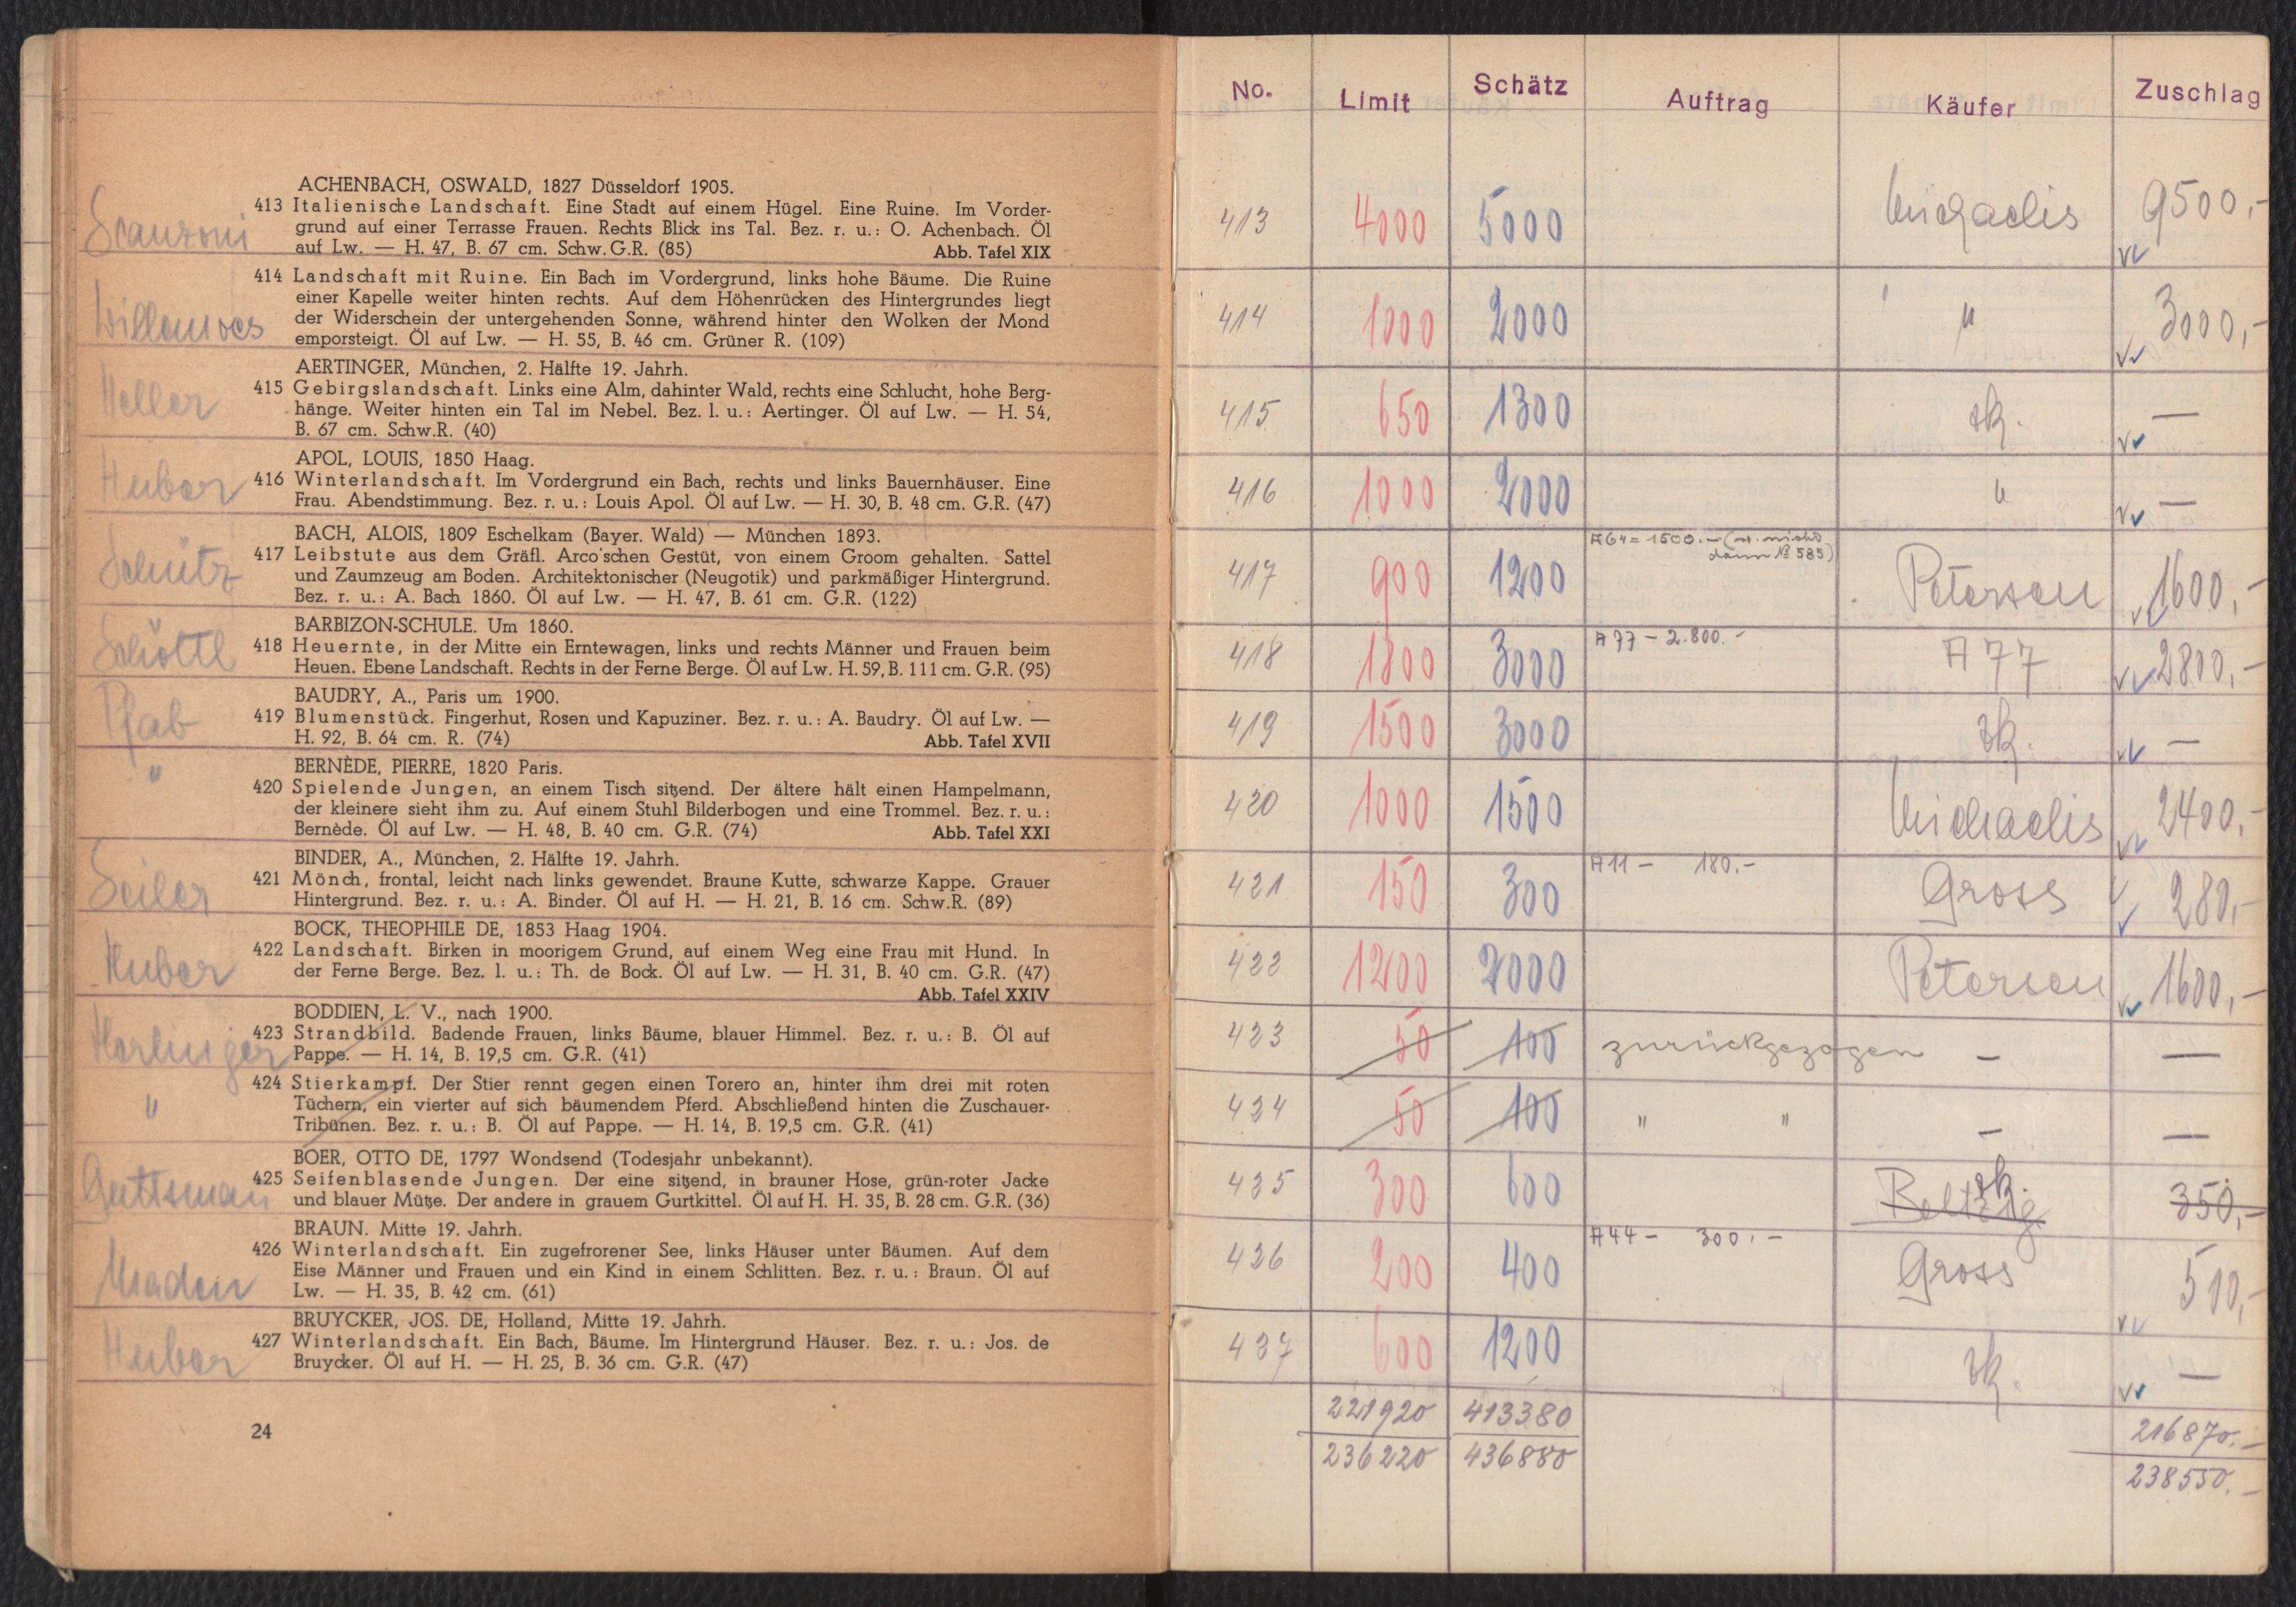 ACHENBACH, OSWALD, 1827 Düsseldorf 1905.
Scanzoni
413 Italienische Landschaft. Eine Stadt auf einem Hügel. Eine Ruine. Im Vorder-
grund auf einer Terrasse Frauen. Rechts Blick ins Tal. Bez. r. u.: O. Achenbach. Öl
auf Lw. — H. 47, B. 67 cm. Schw. G.R. (85) Abb. Tafel XIX
414 Landschaft mit Ruine. Ein Bach im Vordergrund, links hohe Bäume. Die Ruine
einer Kapelle weiter hinten rechts. Auf dem Höhenrücken des Hintergrundes liegt
der Widerschein der untergehenden Sonne, während hinter den Wolken der Mond
emporsteigt. Öl auf Lw. — H. 55, B. 46 cm. Grüner R. (109)
AERTINGER, München, 2. Hälfte 19. Jahrh.
Heller
415 Gebirgslandschaft. Links eine Alm, dahinter Wald, rechts eine Schlucht, hohe Berg-
hänge. Weiter hinten ein Tal im Nebel. Bez. l. u.: Aertinger. Öl auf Lw. — H. 54,
B. 67 cm. Schw.R. (40)
APOL, LOUIS, 1850 Haag.
Huber
416 Winterlandschaft. Im Vordergrund ein Bach, rechts und links Bauernhäuser. Eine
Frau. Abendstimmung. Bez. r. u.: Louis Apol. Öl auf Lw. — H. 30, B. 48 cm. G.R. (47)
BACH, ALOIS, 1809 Eschelkam (Bayer. Wald) — München 1893.
Schütz
417 Leibstute aus dem Gräfl. Arco'schen Gestüt, von einem Groom gehalten. Sattel
und Zaumzeug am Boden. Architektonischer (Neugotik) und parkmäßiger Hintergrund.
Bez. r. u.: A. Bach 1860. Öl auf Lw. — H. 47, B. 61 cm. G.R. (122)
BARBIZON-SCHULE. Um 1860.
Schöttl
418 Heuernte, in der Mitte ein Erntewagen, links und rechts Männer und Frauen beim
Heuen. Ebene Landschaft. Rechts in der Ferne Berge. Öl auf Lw. H. 59, B. 111 cm. G.R. (95)
BAUDRY, A., Paris um 1900.
Pfab
419 Blumenstück. Fingerhut, Rosen und Kapuziner. Bez. r. u.: A. Baudry. Öl auf Lw. —
H. 92, B. 64 cm. R. (74) Abb. Tafel XVII
BERNÈDE, PIERRE, 1820 Paris.
"
420 Spielende Jungen, an einem Tisch sitzend. Der ältere hält einen Hampelmann,
der kleinere sieht ihm zu. Auf einem Stuhl Bilderbogen und eine Trommel. Bez. r. u.:
Bernède. Öl auf Lw. — H. 48, B. 40 cm. G.R. (74) Abb. Tafel XXI
BINDER, A., München, 2. Hälfte 19. Jahrh.
Seiler
421 Mönch, frontal, leicht nach links gewendet. Braune Kutte, schwarze Kappe. Grauer
Hintergrund. Bez. r. u.: A. Binder. Öl auf H. — H. 21, B. 16 cm. Schw.R. (89)
BOCK, THEOPHILE DE, 1853 Haag 1904.
Huber
422 Landschaft. Birken in moorigem Grund, auf einem Weg eine Frau mit Hund. In
der Ferne Berge. Bez. l. u.: Th. de Bock. Öl auf Lw. — H. 31, B. 40 cm. G.R. (47)
Abb. Tafel XXIV
BODDIEN, L. V., nach 1900.
423 Strandbild. Badende Frauen, links Bäume, blauer Himmel. Bez. r. u.: B. Öl auf
Pappe. — H. 14, B. 19,5 cm. G.R. (41)
"
424 Stierkampf. Der Stier rennt gegen einen Torero an, hinter ihm drei mit roten
Tüchern, ein vierter auf sich bäumendem Pferd. Abschließend hinten die Zuschauer-
Tribünen. Bez. r. u.: B. Öl auf Pappe. — H. 14, B. 19,5 cm. G.R. (41)
BOER, OTTO DE, 1797 Wondsend (Todesjahr unbekannt).
Guttsman
425 Seifenblasende Jungen. Der eine sitzend, in brauner Hose, grün-roter Jacke
und blauer Mütze. Der andere in grauem Gurtkittel. Öl auf H. H. 35, B. 28 cm. G.R. (36)
BRAUN. Mitte 19. Jahrh.
426 Winterlandschaft. Ein zugefrorener See, links Häuser unter Bäumen. Auf dem
Eise Männer und Frauen und ein Kind in einem Schlitten. Bez. r. u.: Braun. Öl auf
Lw. — H. 35, B. 42 cm. (61)
BRUYCKER, JOS. DE, Holland, Mitte 19. Jahrh.
Huber
427 Winterlandschaft. Ein Bach, Bäume. Im Hintergrund Häuser. Bez. r. u.: Jos. de
Bruycker. Öl auf H. — H. 25, B. 36 cm. G.R. (47)
24
No. Limit Schätz Auftrag Käufer Zuschlag
413 4000 5000 Michaelis 9500,-
414 1000 2000 " 3000,-
415 650 1300 zk. —
416 1000 2000 " —
A64 = 1500.- (w. nicht
dann № 585)
417 900 1200 Petersen 1600,-
418 1800 3000 A77 - 2.800.- A 77 2800,-
419 1500 3000 zk. —
420 1000 1500 Michaelis 2400,-
421 150 300 A11 - 180.- Gross 280,-
422 1200 2000 Petersen 1600,-
423 50 100 zurückgezogen — —
424 50 100 " " — —
425 300 600 Beltzig zk. 350,-
426 200 400 A44 - 300.- Gross 510,-
427 600 1200 zk. —
221920 413380 216870.-
236220 436880 238550.-